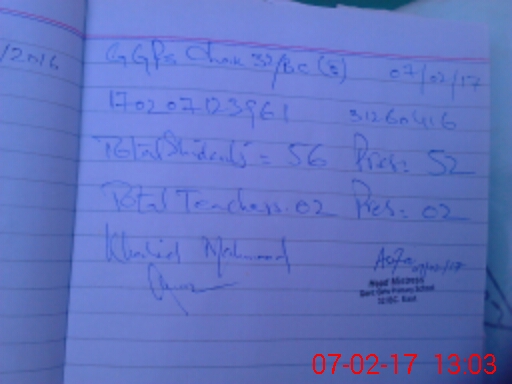 /2016
GGPS Chak 32/BC (E) 07/02/17
17020713961 31260416
Total Students = 56 Pres: 52
Total Teachers: 02 Pres: 02
Khalid Mahmood
07/02/17
Head Mistress
Govt. Girls Primary School
32/BC.
07-02-17 13:03